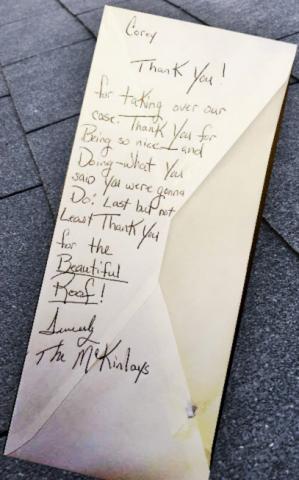 Corey
Thank You!
for taking over our
case. Thank You for
Being so nice and
Doing what You
said You were gonna
Do. Last but not
Least Thank You
for the
Beautiful
Roof!
Sincerely
The McKinlays